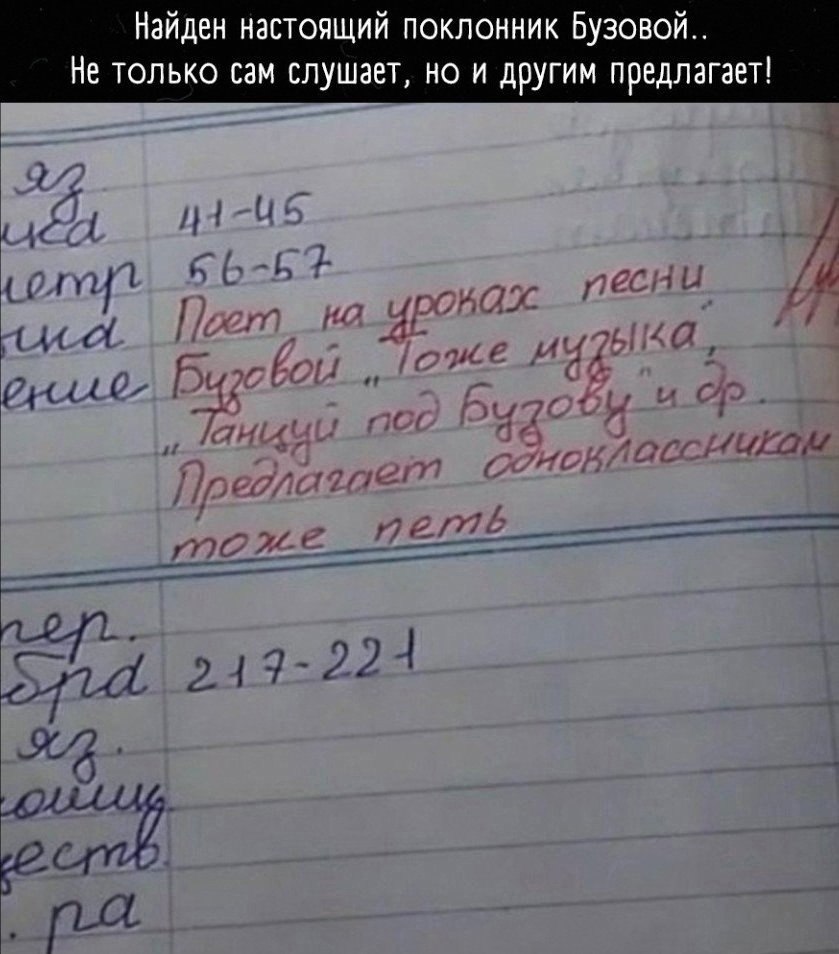 Найден настоящий поклонник Бузовой..
Не только сам слушает, но и другим предлагает!
яз
41-45
56-57
Поет на уроках песни
Бузовой „Тоже музыка",
„Танцуй под Бузову" и др.
Предлагает одноклассникам
тоже петь
пер.
217-221
яз.
ра